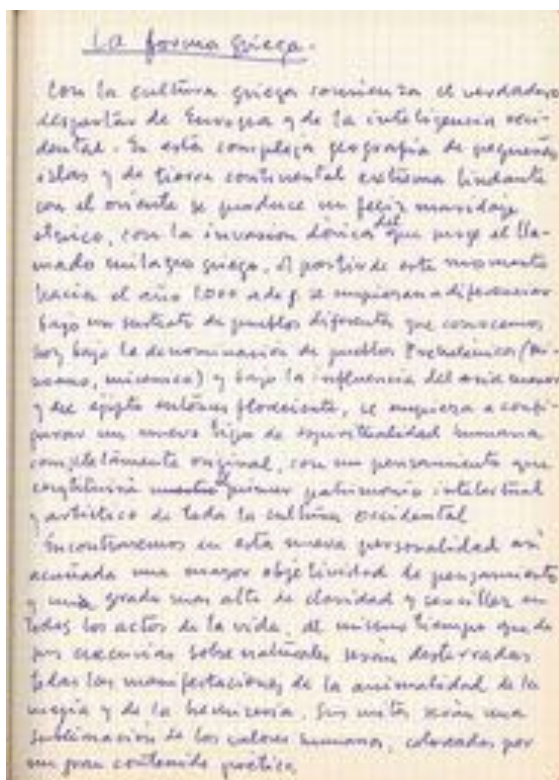 La forma griega.
Con la cultura griega comienza el verdadero
despertar de Europa y de la inteligencia occi-
dental. En esta compleja geografía de pequeñas
islas y de tierra continental extrema lindante
con el oriente se produce un feliz maridaje
étnico, con la invasión dórica del que surge el lla-
mado milagro griego. A partir de este momento
hacia el año 1.000 a de J. se empiezan a diferenciar
bajo un sustrato de pueblos diferentes que conocemos
hoy bajo la denominación de pueblos Prehelénicos (Mi-
noano, micénico) y bajo la influencia del asia menor
y del egipto entonces floreciente, se empieza a confi-
gurar un nuevo tipo de espiritualidad humana
completamente original, con un pensamiento que
constituirá nuestro primer patrimonio intelectual
y artístico de toda la cultura occidental
Encontraremos en esta nueva personalidad así
acuñada una mayor objetividad de pensamiento
y un grado mas alto de claridad y sencillez en
todos los actos de la vida, al mismo tiempo que de
sus creencias sobrenaturales serán desterradas
todas las manifestaciones de la animalidad de la
magia y de la hechicería. Sus mitos serán una
sublimación de los valores humanos, coloreados por
un gran contenido poético.